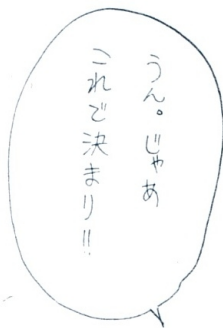 うん。じゃあ
これで決まり!!